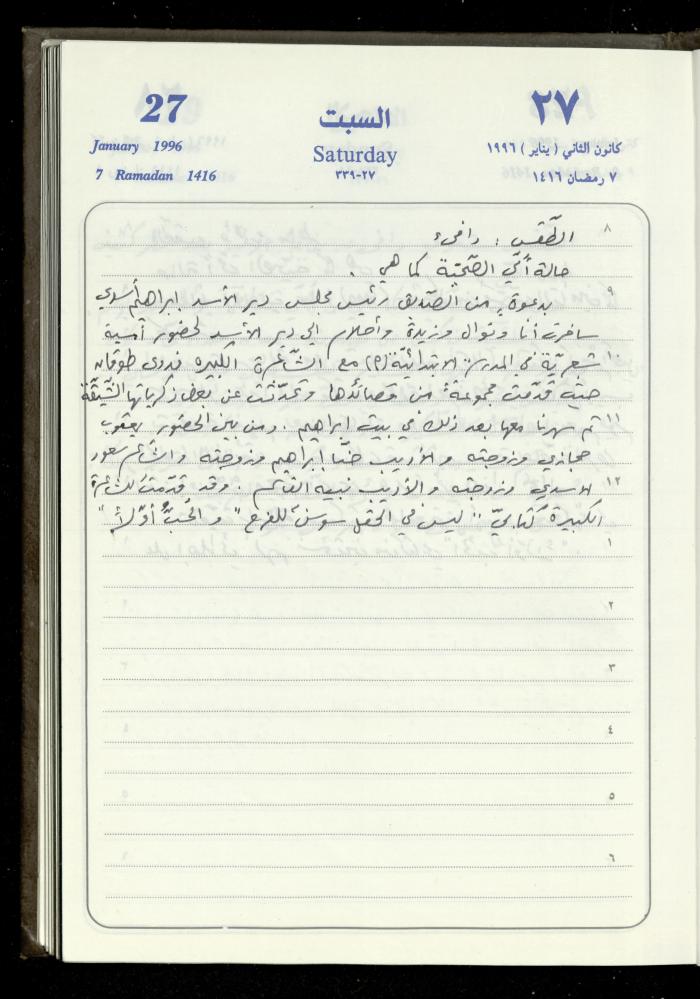 27
٢٧
السبت
January 1996
Saturday
كانون الثاني ( يناير ) ١٩٩٦
7 Ramadan 1416
٢٧-٣٣٩
٧ رمضان ١٤١٦
٨ الطّقس : دافئ
حالة أمّي الصّحيّة كما هي .
٩ بدعوة من الصّديق رئيس مجلس دير الأسد ابراهيم أسدي
سافرت أنا ونوال وزيدة وأحلام الى دير الأسد لحضور أمسية
١٠ شعريّة في المدرسة الابتدائيّة (م) مع الشّاعرة الكبيرة فدوى طوقان
حيث قدّمت مجموعة من قصائدها وتحدّثت عن بعض ذكرياتها الشّيّقة
١١ ثم سهرنا معها بعد ذلك في بيت ابراهيم . ومن بين الحضور يعقوب
حجازي وزوجته والأديب حنّا ابراهيم وزوجته والشاعر سعود
١٢ الاسدي وزوجته والأديب نبيه القاسم . وقد قدّمت للشاعرة
الكبيرة كتابيّ "ليس في الحقل سوسن للفرح" و "الحبّ أوّلاً"
١
٢
٣
٤
٥
٦